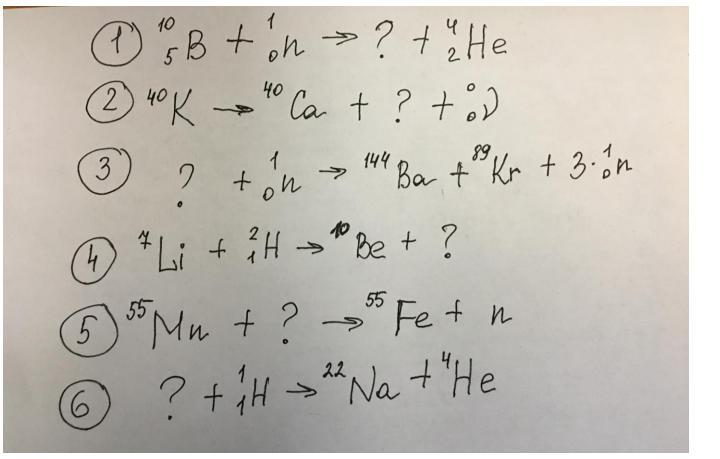 ① ¹⁰₅B + ¹₀n → ? + ⁴₂He
② ⁴⁰K → ⁴⁰Ca + ? + ⁰₀ν
③ ? + ¹₀n → ¹⁴⁴Ba + ⁸⁹Kr + 3·¹₀n
④ ⁷Li + ²₁H → ¹⁰Be + ?
⑤ ⁵⁵Mn + ? → ⁵⁵Fe + n
⑥ ? + ¹₁H → ²²Na + ⁴He